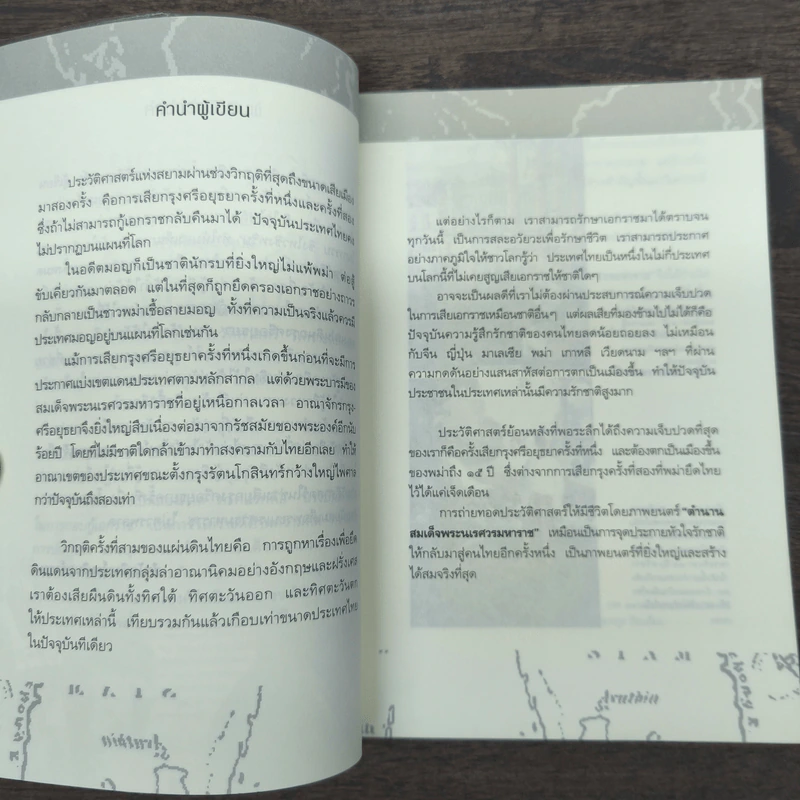 คำนำผู้เขียน
ประวัติศาสตร์แห่งสยามผ่านช่วงวิกฤติที่สุดถึงขนาดเสียเมือง
มาสองครั้ง คือการเสียกรุงศรีอยุธยาครั้งที่หนึ่งและครั้งที่สอง
ซึ่งถ้าไม่สามารถกู้เอกราชกลับคืนมาได้ ปัจจุบันประเทศไทยคง
ไม่ปรากฏบนแผนที่โลก
ในอดีตมอญก็เป็นชาตินักรบที่ยิ่งใหญ่ไม่แพ้พม่า ต่อสู้
ขับเคี่ยวกันมาตลอด แต่ในที่สุดก็ถูกยึดครองเอกราชอย่างถาวร
กลับกลายเป็นชาวพม่าเชื้อสายมอญ ทั้งที่ความเป็นจริงแล้วควรมี
ประเทศมอญอยู่บนแผนที่โลกเช่นกัน
แม้การเสียกรุงศรีอยุธยาครั้งที่หนึ่งเกิดขึ้นก่อนที่จะมีการ
ประกาศแบ่งเขตแดนประเทศตามหลักสากล แต่ด้วยพระบารมีของ
สมเด็จพระนเรศวรมหาราชที่อยู่เหนือกาลเวลา อาณาจักรกรุง
ศรีอยุธยาจึงยิ่งใหญ่สืบเนื่องต่อมาจากรัชสมัยของพระองค์อีกนับ
ร้อยปี โดยที่ไม่มีชาติใดกล้าเข้ามาทำสงครามกับไทยอีกเลย ทำให้
อาณาเขตของประเทศขณะตั้งกรุงรัตนโกสินทร์กว้างใหญ่ไพศาล
กว่าปัจจุบันถึงสองเท่า
วิกฤติครั้งที่สามของแผ่นดินไทยคือ การถูกหาเรื่องเพื่อยึด
ดินแดนจากประเทศกลุ่มล่าอาณานิคมอย่างอังกฤษและฝรั่งเศส
เราต้องเสียผืนดินทั้งทิศใต้ ทิศตะวันออก และทิศตะวันตก
ให้ประเทศเหล่านี้ เทียบรวมกันแล้วเกือบเท่าขนาดประเทศไทย
ในปัจจุบันทีเดียว
แต่อย่างไรก็ตาม เราสามารถรักษาเอกราชมาได้ตราบจน
ทุกวันนี้ เป็นการสละอวัยวะเพื่อรักษาชีวิต เราสามารถประกาศ
อย่างภาคภูมิใจให้ชาวโลกรู้ว่า ประเทศไทยเป็นหนึ่งในไม่กี่ประเทศ
บนโลกนี้ที่ไม่เคยสูญเสียเอกราชให้ชาติใดๆ
อาจจะเป็นผลดีที่เราไม่ต้องผ่านประสบการณ์ความเจ็บปวด
ในการเสียเอกราชเหมือนชาติอื่นๆ แต่ผลเสียที่มองข้ามไปไม่ได้ก็คือ
ปัจจุบันความรู้สึกรักชาติของคนไทยลดน้อยถอยลง ไม่เหมือน
กับจีน ญี่ปุ่น มาเลเซีย พม่า เกาหลี เวียดนาม ฯลฯ ที่ผ่าน
ความกดดันอย่างแสนสาหัสต่อการตกเป็นเมืองขึ้น ทำให้ปัจจุบัน
ประชาชนในประเทศเหล่านั้นมีความรักชาติสูงมาก
ประวัติศาสตร์ย้อนหลังที่พอระลึกได้ถึงความเจ็บปวดที่สุด
ของเราก็คือครั้งเสียกรุงศรีอยุธยาครั้งที่หนึ่ง และต้องตกเป็นเมืองขึ้น
ของพม่าถึง ๑๕ ปี ซึ่งต่างจากการเสียกรุงครั้งที่สองที่พม่ายึดไทย
ไว้ได้แค่เจ็ดเดือน
การถ่ายทอดประวัติศาสตร์ให้มีชีวิตโดยภาพยนตร์ "ตำนาน
สมเด็จพระนเรศวรมหาราช" เหมือนเป็นการจุดประกายหัวใจรักชาติ
ให้กลับมาสู่คนไทยอีกครั้งหนึ่ง เป็นภาพยนตร์ที่ยิ่งใหญ่และสร้าง
ได้สมจริงที่สุด